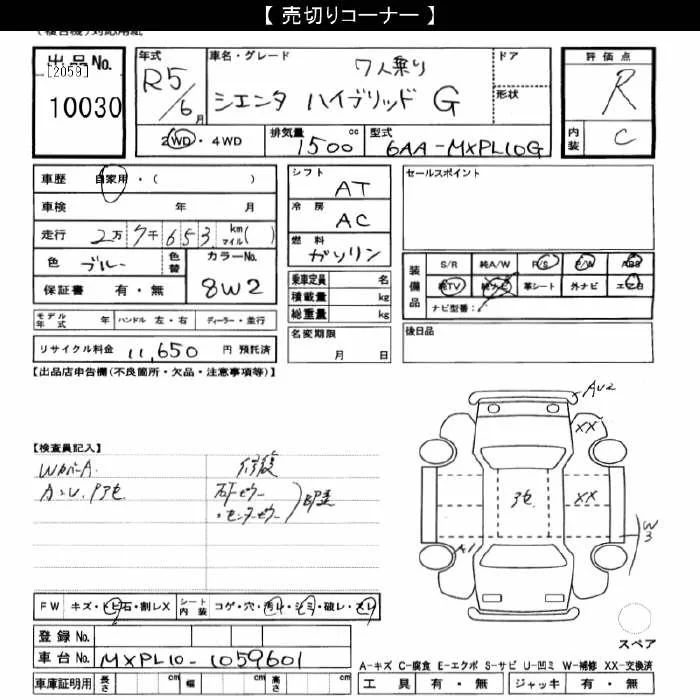 【 売切りコーナー 】
出品No.
[2059]
10030
年式
R5/6月
車名・グレード
7人乗り
シエンタ ハイブリッド G
ドア
形状
評価点
R
内装
C
2WD・4WD
排気量
1500 cc
型式
6AA-MXPL10G
車歴 自家用・( )
車検 年 月
走行 2万7千653 km マイル( )
色 ブルー 色替
カラーNo.
8W2
保証書 有・無
シフト
AT
冷房
AC
燃料
ガソリン
乗車定員 名
積載量 kg
総重量 kg
セールスポイント
装備品
S/R 純A/W P/S P/W ABS
純TV 純ナビ 革シート 外ナビ エアB
ナビ型番:
モデル年式 年 ハンドル 左・右 ディーラー・並行
リサイクル料金 11,650 円 預託済
名変期限
月 日
後日品
【出品店申告欄(不良箇所・欠品・注意事項等)】
AU2
XX
【検査員記入】
WカバーA.
修復
XX
W3
A1
FW キズ・トビ石・割レX シート内装 コゲ・穴・汚レ・シミ・破レ・スレ
登録No.
車台No. MXPL10-1059601
スペア
A-キズ C-腐食 E-エクボ S-サビ U-凹ミ W-補修 XX-交換済
車庫証明用 長さ cm 幅 cm 高さ cm
工具 有・無 ジャッキ 有・無